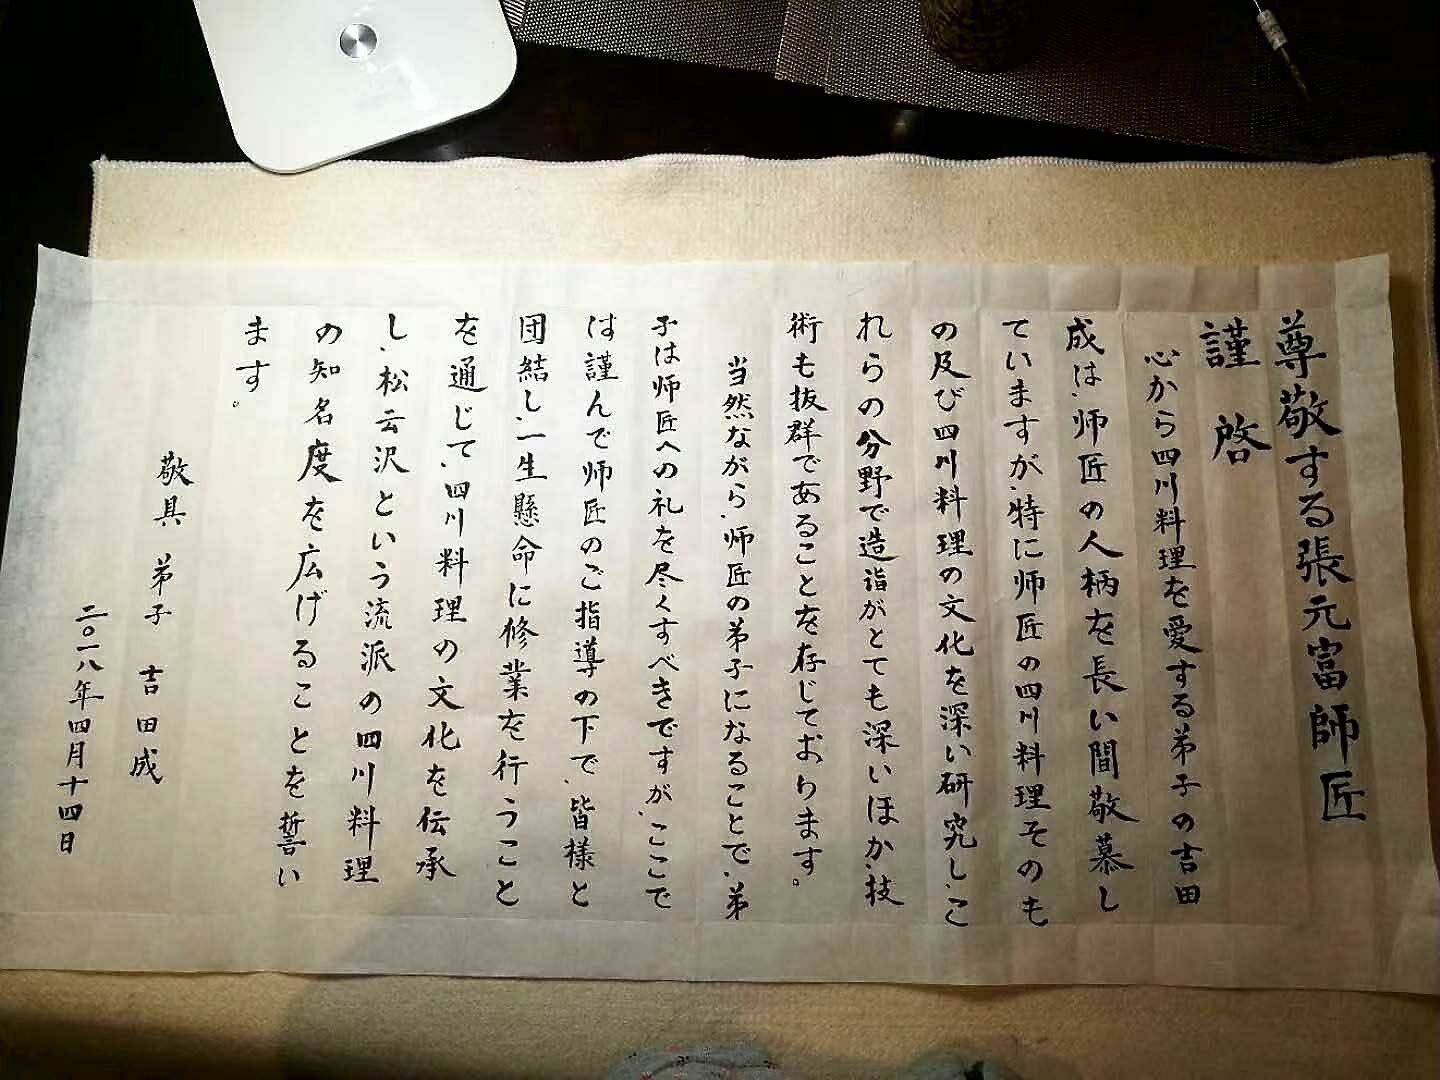 尊敬する張元富師匠
謹啓
心から四川料理を愛する弟子の吉田
成は、师匠の人柄を長い間敬慕し
ていますが、特に师匠の四川料理そのも
の及び四川料理の文化を深い研究し、こ
れらの分野で造詣がとても深いほか、技
術も抜群であることを存じております。
当然ながら、师匠の弟子になることで、弟
子は师匠への礼を尽くすべきですが、ここで
は謹んで师匠のご指導の下で、皆様と
団結し、一生懸命に修業を行うこと
を通じて、四川料理の文化を伝承
し、松云沢という流派の四川料理
の知名度を広げることを誓い
ます。
敬具 弟子 吉田成
二〇一八年四月十四日